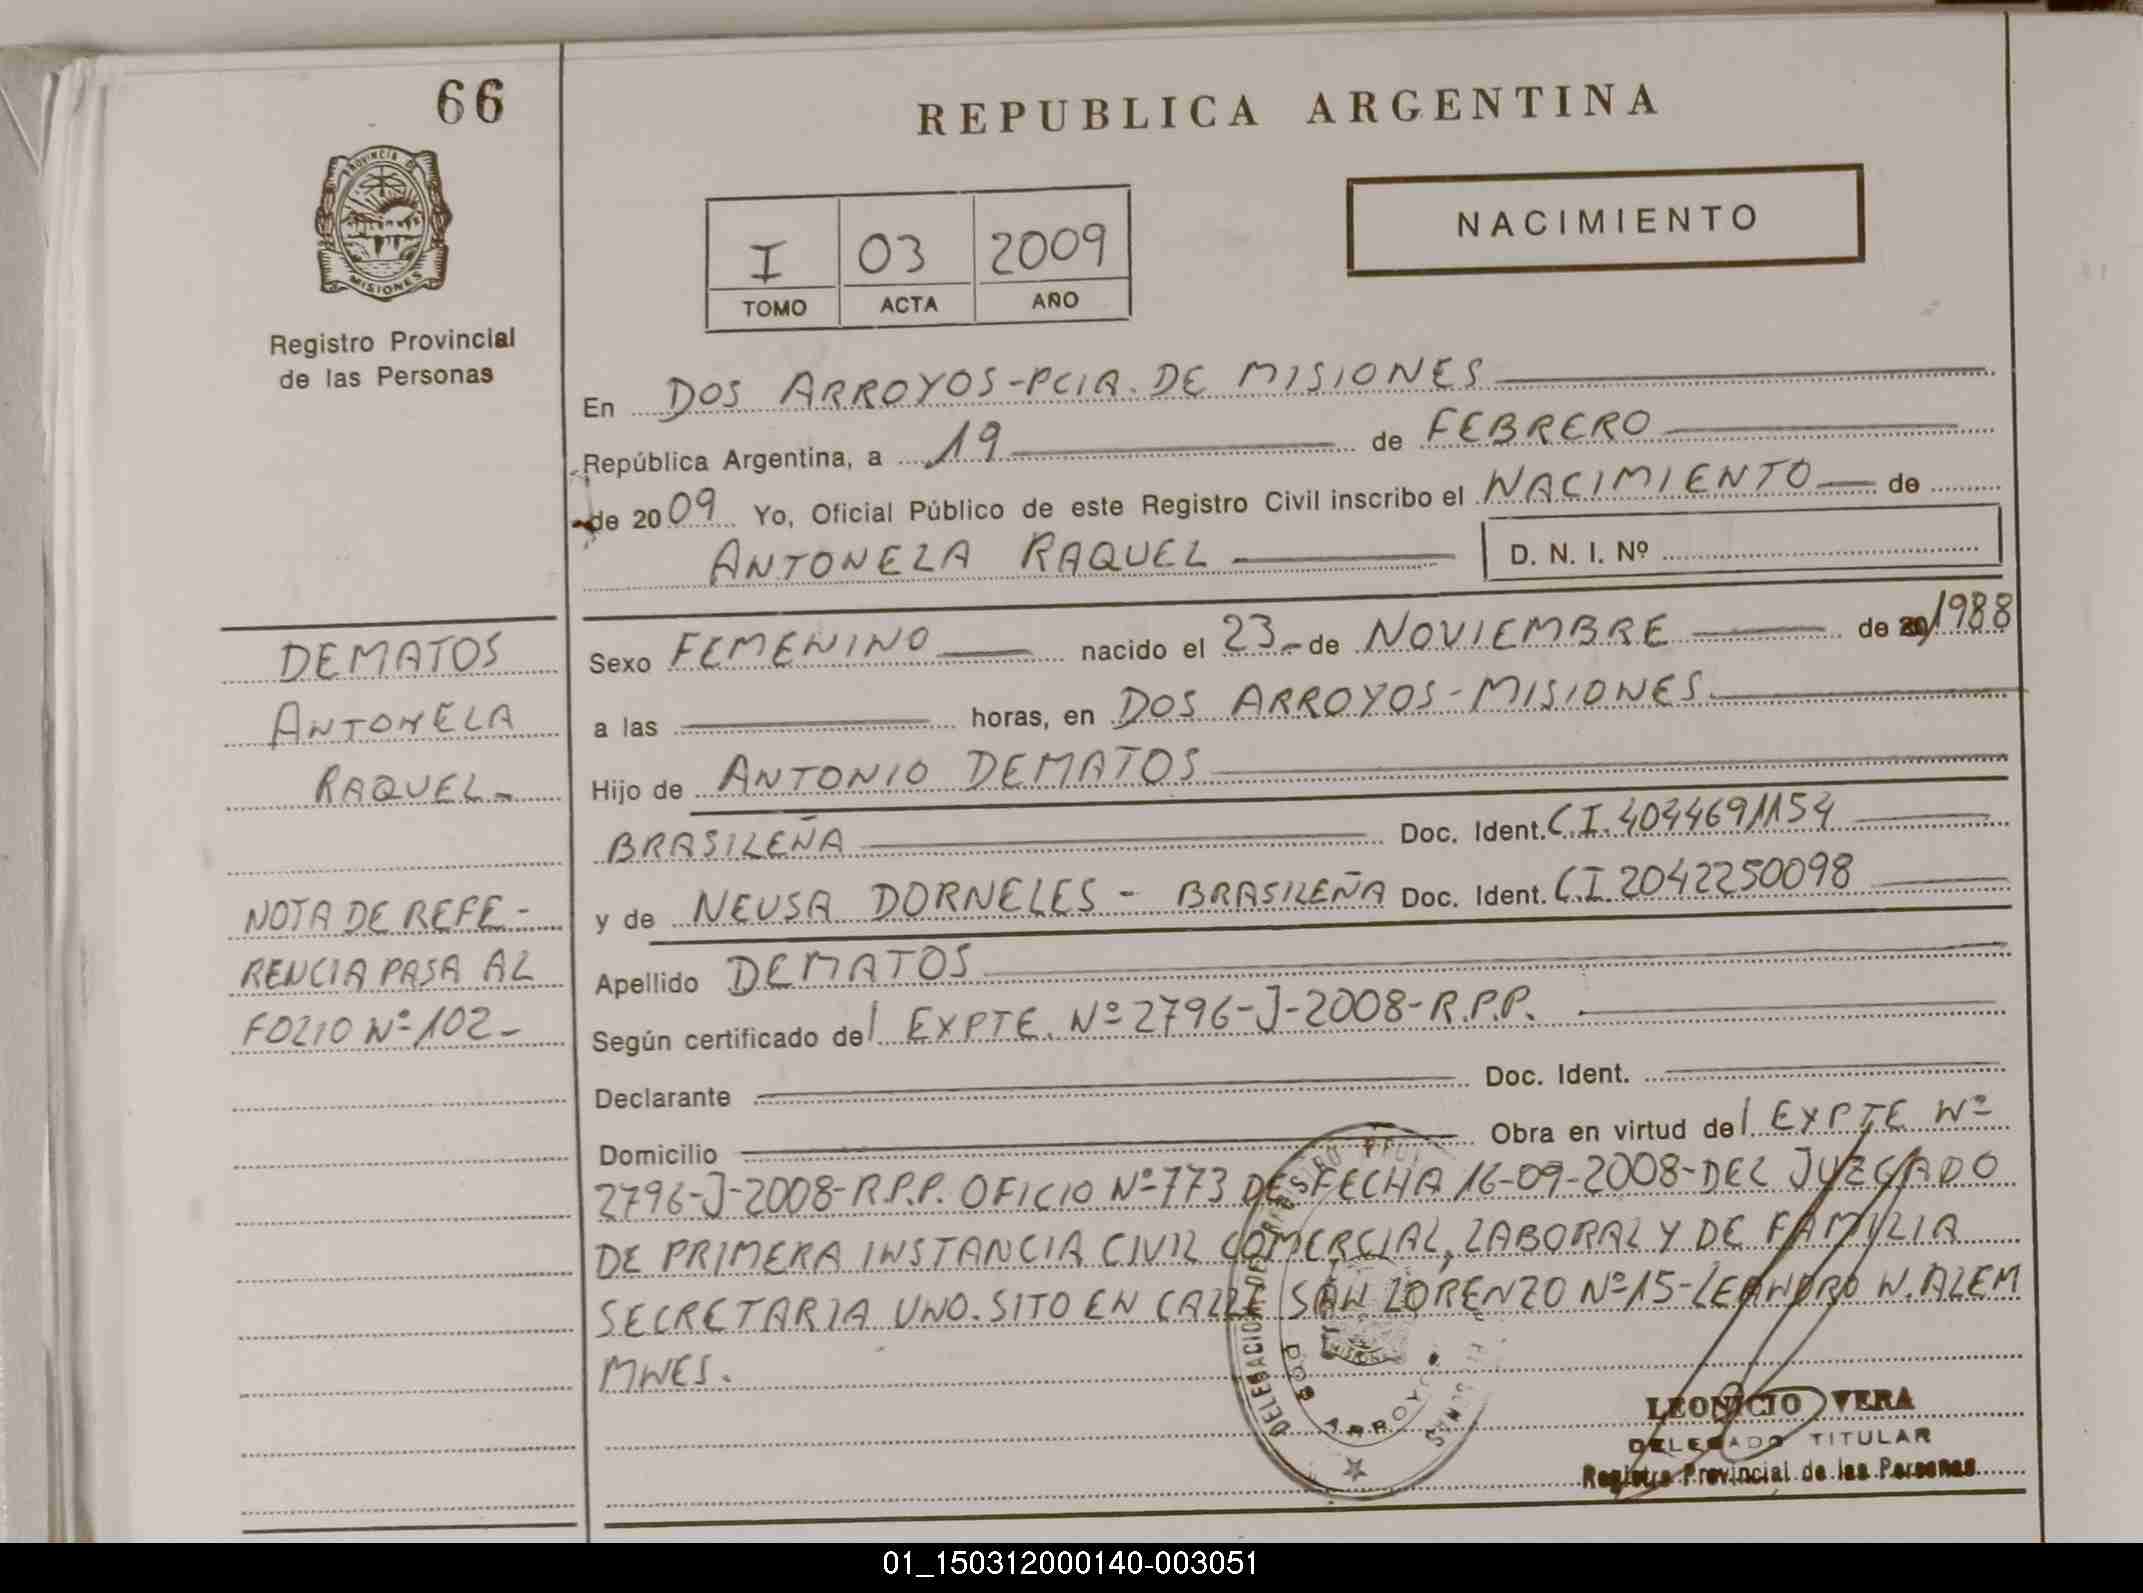 66
REPUBLICA ARGENTINA
PROVINCIA DE
MISIONES
NACIMIENTO
I 03 2009
TOMO ACTA AÑO
Registro Provincial
de las Personas
En DOS ARROYOS-PCIA. DE MISIONES
República Argentina, a 19 de FEBRERO
de 2009 Yo, Oficial Público de este Registro Civil inscribo el NACIMIENTO de
ANTONELA RAQUEL D. N. I. Nº
DEMATOS
ANTONELA
RAQUEL-
NOTA DE REFE-
RENCIA PASA AL
FOLIO Nº 102-
Sexo FEMENINO nacido el 23- de NOVIEMBRE de 20/1988
a las horas, en DOS ARROYOS-MISIONES
Hijo de ANTONIO DEMATOS
BRASILEÑA Doc. Ident. C.I. 4034691154
y de NEUSA DORNELES - BRASILEÑA Doc. Ident. C.I. 2042250098
Apellido DEMATOS
Según certificado del EXPTE. Nº 2796-J-2008-R.P.P.
Declarante Doc. Ident.
Domicilio Obra en virtud del EXPTE Nº
2796-J-2008-R.P.P. OFICIO Nº 773 DE FECHA 16-09-2008-DEL JUZGADO
DE PRIMERA INSTANCIA CIVIL COMERCIAL, LABORAL Y DE FAMILIA
SECRETARIA UNO. SITO EN CALLE SAN LORENZO Nº 15-LEANDRO N. ALEM
MNES.
DELEGACION DE
DOS ARROYOS
MISIONES
LEONICIO VERA
DELEGADO TITULAR
Registro Provincial de las Personas
01_150312000140-003051